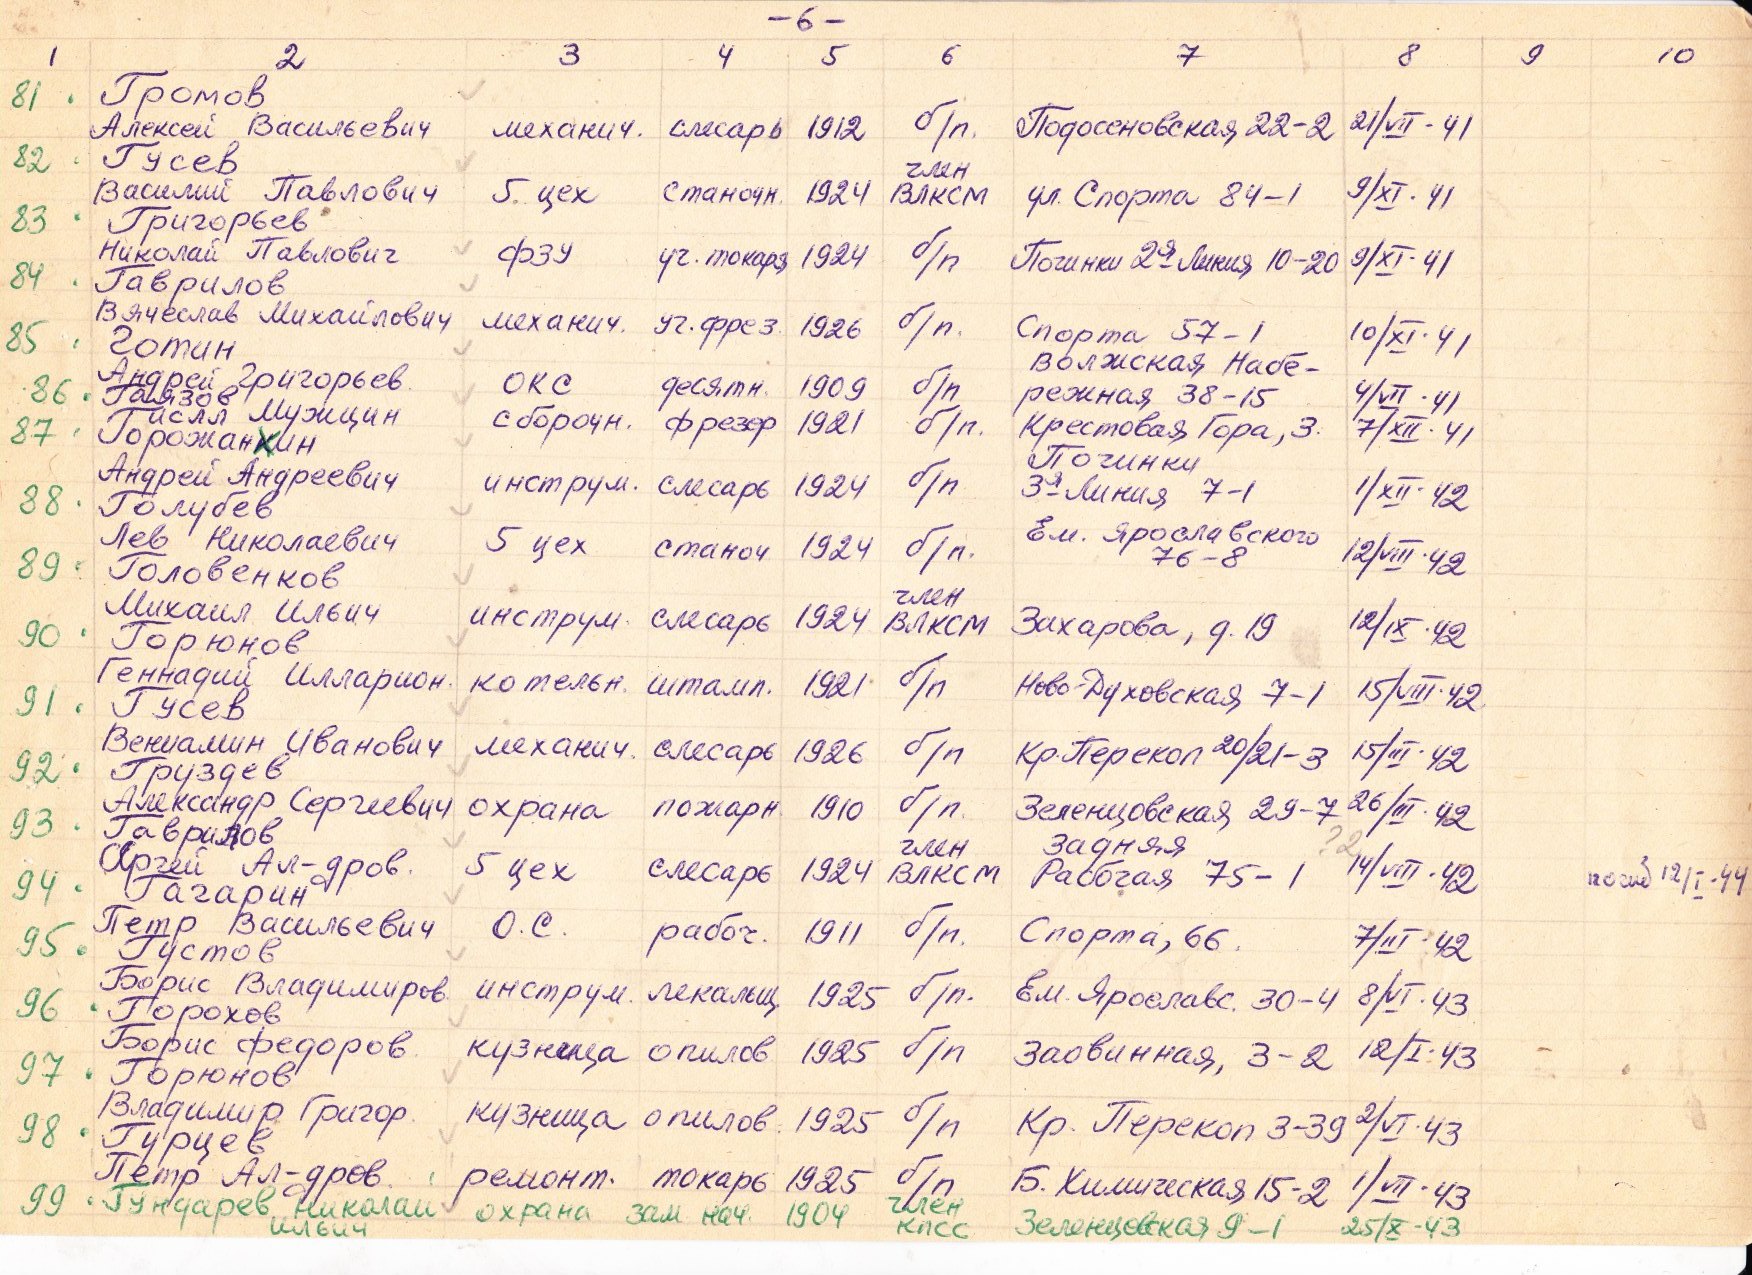 -6-
1 2 3 4 5 6 7 8 9 10
81. Громов
Алексей Васильевич механич. слесарь 1912 б/п. Подосеновская 22-2 21/VII-41
82. Гусев член
Василий Павлович 5 цех станочн. 1924 ВЛКСМ ул. Спорта 84-1 9/XI-41
83. Григорьев
Николай Павлович ФЗУ уч. токаря 1924 б/п Починки 2я Линия 10-20 9/XI-41
84. Гаврилов
Вячеслав Михайлович механич. уч. фрез. 1926 б/п. Спорта 57-1 10/XI-41
85. Готин Волжская Набе-
Андрей Григорьев. ОКС десятн. 1909 б/п режная 38-15 4/VII-41
86. Гаязов
Мужицин сборочн. фрезер 1921 б/п. Крестовая Гора, 3. 7/XII-41
87. Горожанкин Починки
Андрей Андреевич инструм. слесарь 1924 б/п 3я Линия 7-1 1/XII-42
88. Голубев Ем. Ярославского
Лев Николаевич 5 цех станоч 1924 б/п. 76-8 12/VIII-42
89. Головенков член
Михаил Ильич инструм. слесарь 1924 ВЛКСМ Захарова, д. 19 12/IX-42
90. Горюнов
Геннадий Илларион. котельн. штамп. 1921 б/п Ново-Духовская 7-1 15/VIII-42
91. Гусев
Вениамин Иванович механич. слесарь 1926 б/п Кр. Перекоп 20/21-3 15/III-42
92. Груздев
Александр Сергеевич охрана пожарн 1910 б/п. Зеленцовская 29-7 26/III-42
93. Гаврилов член Задняя ?2
Сергей Ал-дров. 5 цех слесарь 1924 ВЛКСМ Рабочая 75-1 14/VIII-42 12/I-44
94. Гагарин
Петр Васильевич О.С. рабоч. 1911 б/п. Спорта, 66. 7/III-42
95. Густов
Борис Владимиров. инструм. лекальщ 1925 б/п. Ем. Ярославс. 30-4 8/VI-43
96. Горохов
Борис Федоров. кузница опилов 1925 б/п Заовинная, 3-2 12/I-43
97. Горюнов
Владимир Григор. кузница опилов. 1925 б/п Кр. Перекоп 3-39 2/VI-43
98. Гурцев
Петр Ал-дров. ремонт. токарь 1925 б/п Б. Химическая 15-2 1/VII-43
99. Гундарев Николай охрана зам нач. 1904 член Зеленцовская 9-1 25/X-43
Ильич КПСС